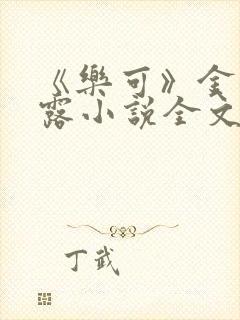 《樂可》金
露小説全文
丁武